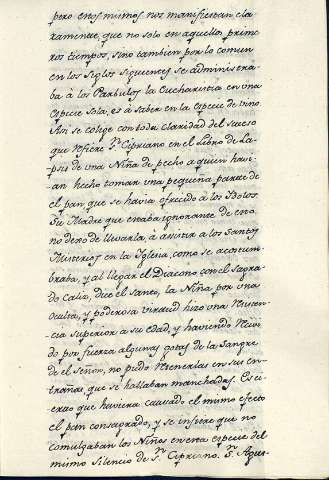 pero estos mismos nos manifiestan cla-
ramente, que no solo en aquellos prime
ros tiempos, sino tambien por lo comun
en los siglos siguientes se administra-
ba à los Parbulos la Eucharistia en una
especie sola, es à saber en la especie de vino
Asi se colege con toda claridad del suceso
que refiere Sn. Cipriano en el Libro de La-
psis de una Niña de pecho a quien havi-
an hecho tomar una pequeña parte de
el pan que se havia ofrecido à los Idolos.
Su Madre que estaba ignorante de esto
no dexo de llevarla, à asistir a los Santos
Misterios en la Iglesia como se acostum
braba, y al llegar el Diacono con el Sagra-
do Caliz, dice el Santo, la Niña por una
oculta, y poderosa virtud hizo una resisten-
cia superior a su edad, y haviendo recivi
do por fuerza algunas gotas de la Sangre
de el Señor, no pudo retenerlas en sus en-
trañas que se hallaban manchadas. Es ci-
erto que huviera causado el mismo efecto
el pan consagrado, y se infiere que no
comulgaban los Niños en esta especie del
mismo silencio de Sn. Cipriano. Sn. Agus-